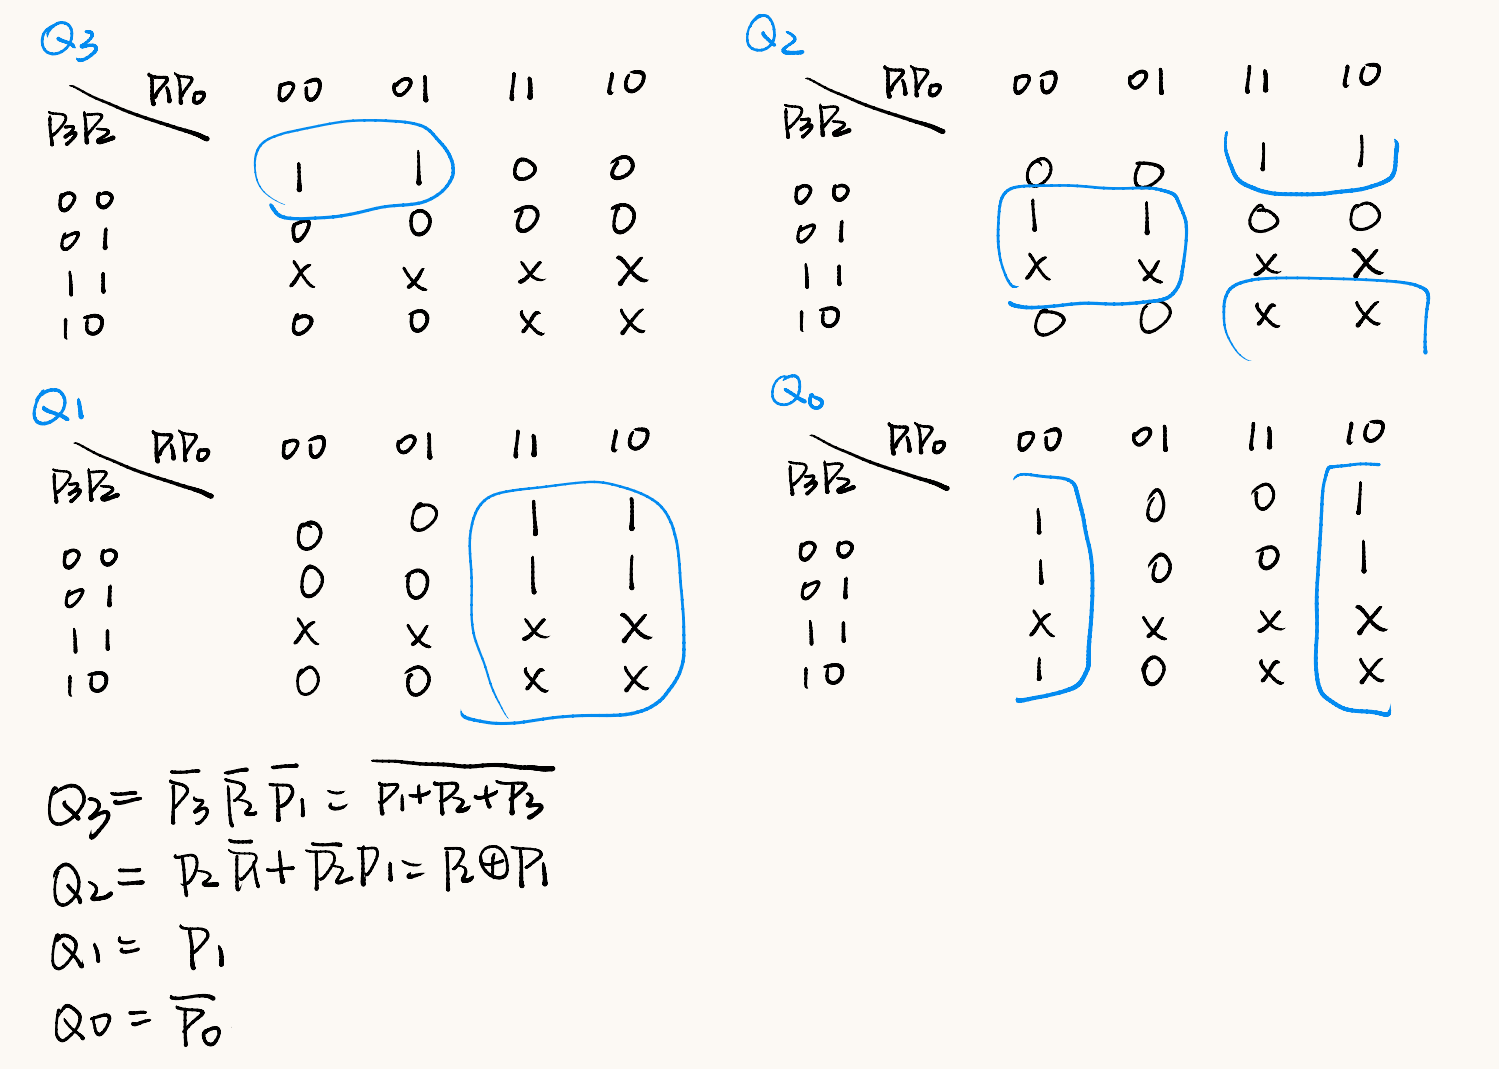 Q3
P1P0 00 01 11 10
P3P2
00 1 1 0 0
01 0 0 0 0
11 X X X X
10 0 0 X X
Q2
P1P0 00 01 11 10
P3P2
00 0 0 1 1
01 1 1 0 0
11 X X X X
10 0 0 X X
Q1
P1P0 00 01 11 10
P3P2
00 0 0 1 1
01 0 0 1 1
11 X X X X
10 0 0 X X
Q0
P1P0 00 01 11 10
P3P2
00 1 0 0 1
01 1 0 0 1
11 X X X X
10 1 0 X X
Q3 = P̅3 P̅2 P̅1 = \overline{P1+P2+P3}
Q2 = P2 P̅1 + P̅2 P1 = P2 ⊕ P1
Q1 = P1
Q0 = P̅0